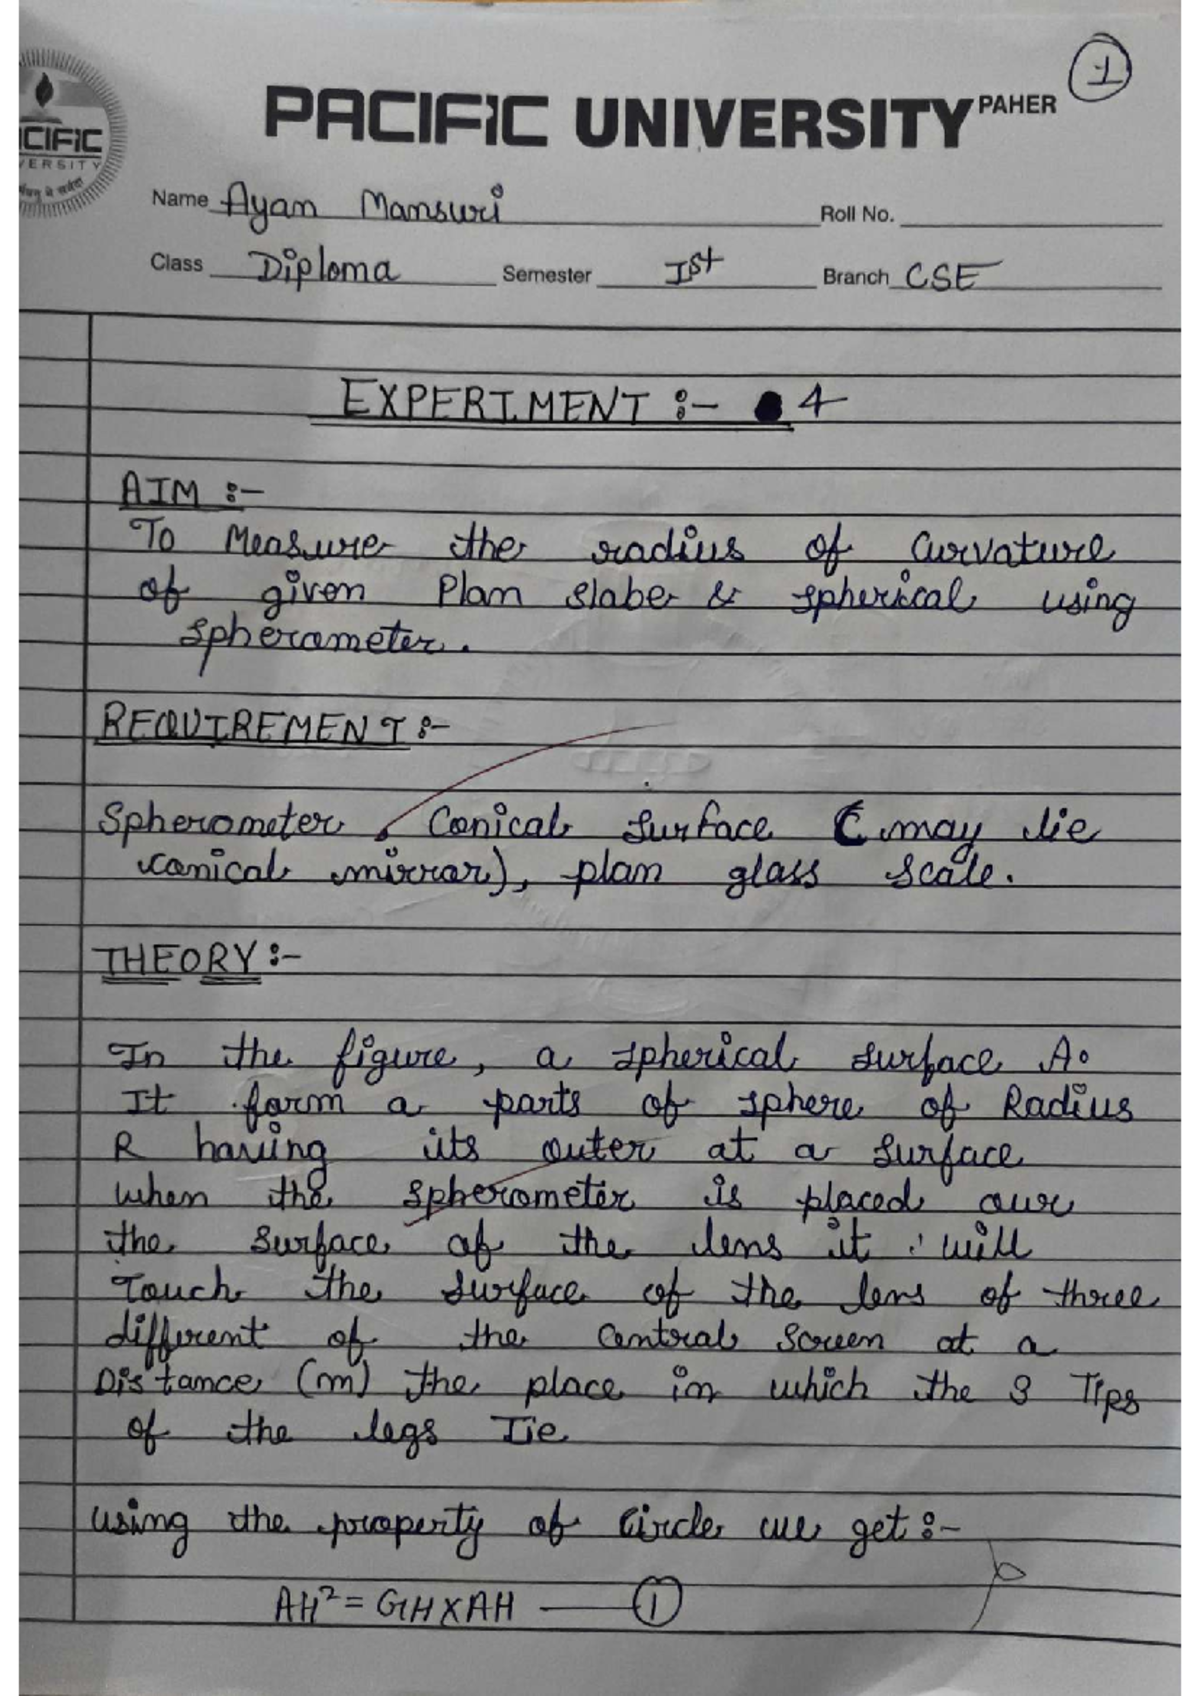 1
PACIFIC UNIVERSITY PAHER
CIFIC
VERSITY
Name Ayan Mansuri Roll No.
Class Diploma Semester Ist Branch CSE
EXPERIMENT :- 4
AIM :-
To Measure the radius of Curvature
of given Plan slabe & spherical using
spherameter.
REQUIREMENT :-
Spherometer, Conical surface (may lie
conical mirrar), plan glass scale.
THEORY :-
In the figure, a spherical surface A.
It form a parts of sphere of Radius
R having its outer at a surface
when the spherometer is placed our
the surface of the lens it will
Touch the surface of the lens of three
different of the Central Screen at a
Distance (m) the place in which the 3 Tips
of the legs Iie
using the property of Circle we get :-
AH² = GH X AH — 1